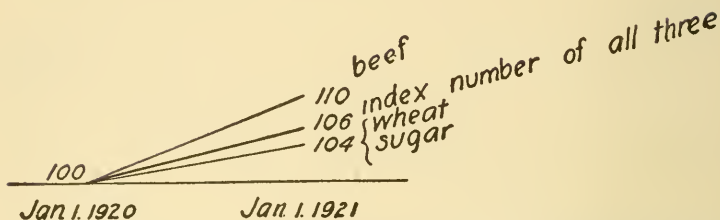 beef
110 index number of all three
106 { wheat
104 { sugar
100
Jan 1. 1920 Jan 1. 1921